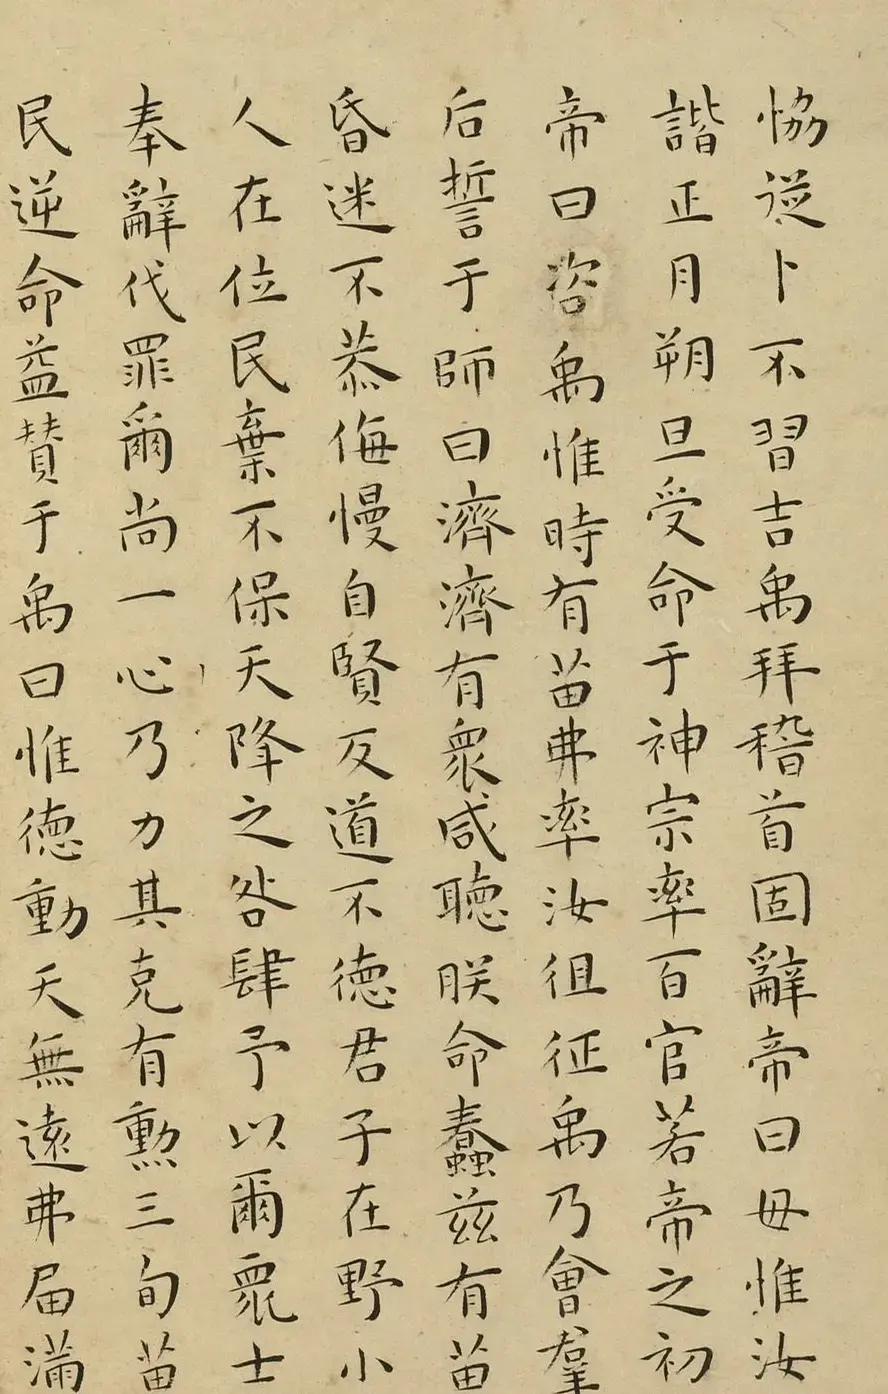 恊從卜不習吉禹拜稽首固辭帝曰毋惟汝
諧正月朔旦受命于神宗率百官若帝之初
帝曰咨禹惟時有苗弗率汝徂征禹乃會羣
后誓于師曰濟濟有衆咸聽朕命蠢茲有苗
昏迷不恭侮慢自賢反道不德君子在野小
人在位民棄不保天降之咎肆予以爾衆士
奉辭伐罪爾尚一心乃力其克有勲三旬苗
民逆命益賛于禹曰惟德動天無遠弗届滿